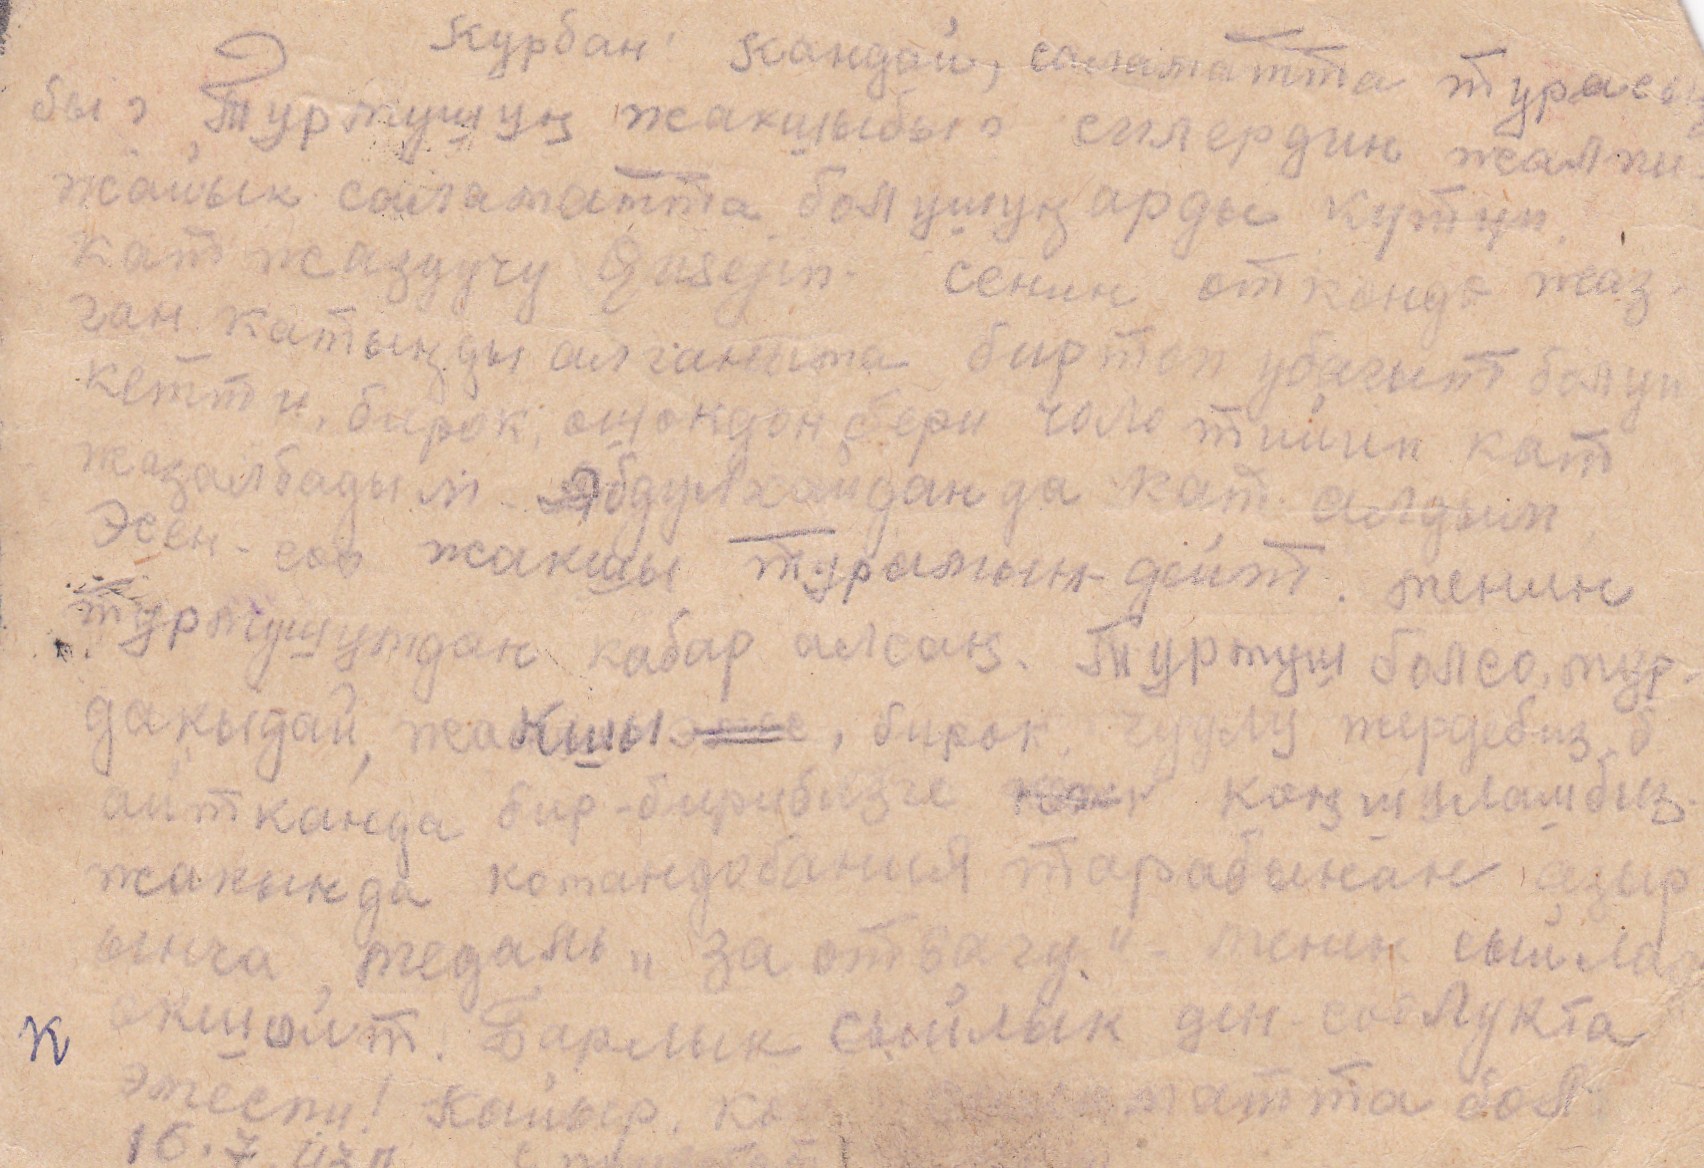 Курбан! Кандай, саламатта турасың
бы? Турмушуң жакшыбы? силердин жалпы
жайык саламатта болушуңарды күтүп
кат жазуучу Qusejin. сенин өткөндө жаз-
ган катыңды алганыма бир топ убагыт болуп
кетти, бирок, ошондон бери чоло тийип кат
жазалбадым. Абдулхайдан да кат алдым
Эсен-соо жакшы турамын дейт. менин
турмушумдан кабар алсаң. Турмуш болсо, мур-
дакыдай, жакшы, бирок, чуулу жердебиз.
айтканда бир-бирибизге коңшулашбыз.
жакында командования тарабынан азыр
ынча, медаль „за отвагу" - менин сыйлаг
окшойт. Барлык сыйлык ден-соолукта
эмеспи! Кайыр, саламатта бол.
16.7.43г.
К